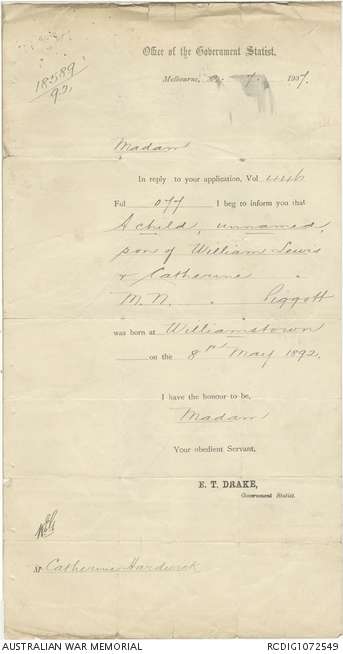 Office of the Government Statist.
18589
92
Melbourne, 1907.
Madam
In reply to your application, Vol 446
Fol 077 I beg to inform you that
A child, unnamed,
son of William Lewis
& Catherine "
M.N. " Piggott
was born at Williamstown
on the 8th May 1892.
I have the honour to be,
Madam
Your obedient Servant,
E. T. DRAKE,
Government Statist.
M Catherine Hardwick
AUSTRALIAN WAR MEMORIAL RCDIG1072549